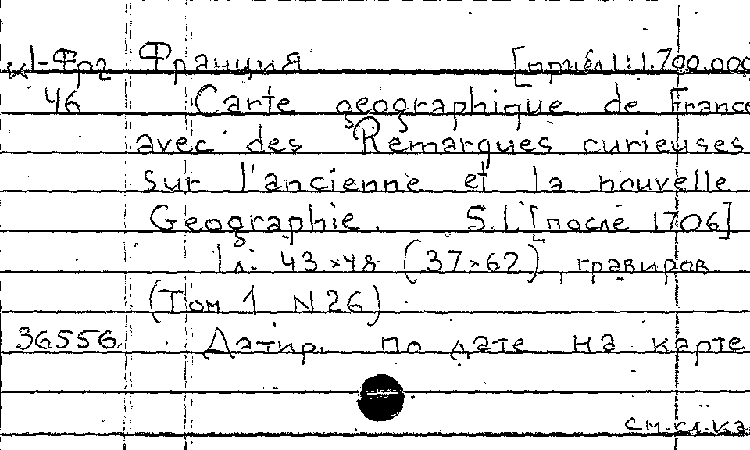 к1-Фрг Франция [прибл 1:1.700.000
46 Carte geographique de Franc
avec des Remarques curieuses
sur l'ancienne et la nouvelle
Geographie. S.l. [после 1706]
1 л. 43×48 (37×62), гравиров
(Том 1 N26)
36556 Датир. по дате на карте
см.сл.ка